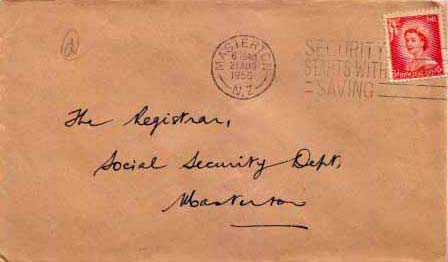 MASTERTON
21 AUG
1956
N.Z.
SECURITY
STARTS WITH
SAVING
The Registrar,
Social Security Dept,
Masterton